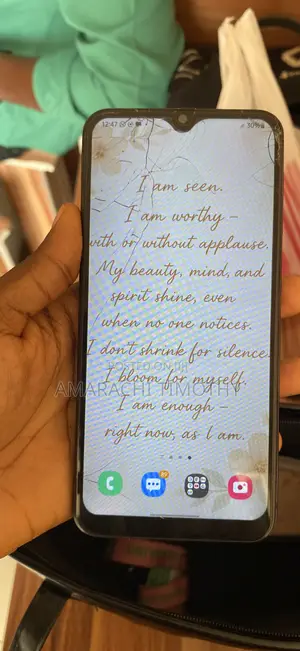 12:47
30%
I am seen.
I am worthy –
with or without applause.
My beauty, mind, and
spirit shine, even
when no one notices.
I don't shrink for silence.
POSTED ON
I bloom for myself.
AMARACHI
I am enough –
right now, as I am.